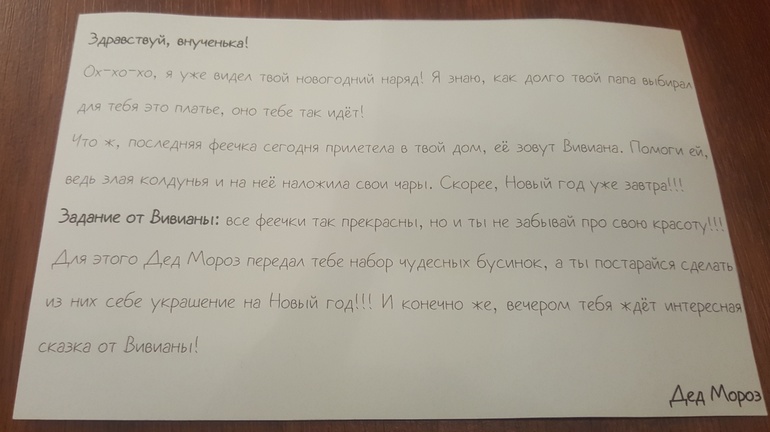 Здравствуй, внученька!
Ох-хо-хо, я уже видел твой новогодний наряд! Я знаю, как долго твой папа выбирал
для тебя это платье, оно тебе так идёт!
Что ж, последняя феечка сегодня прилетела в твой дом, её зовут Вивиана. Помоги ей,
ведь злая колдунья и на неё наложила свои чары. Скорее, Новый год уже завтра!!!
Задание от Вивианы: все феечки так прекрасны, но и ты не забывай про свою красоту!!!
Для этого Дед Мороз передал тебе набор чудесных бусинок, а ты постарайся сделать
из них себе украшение на Новый год!!! И конечно же, вечером тебя ждёт интересная
сказка от Вивианы!
Дед Мороз